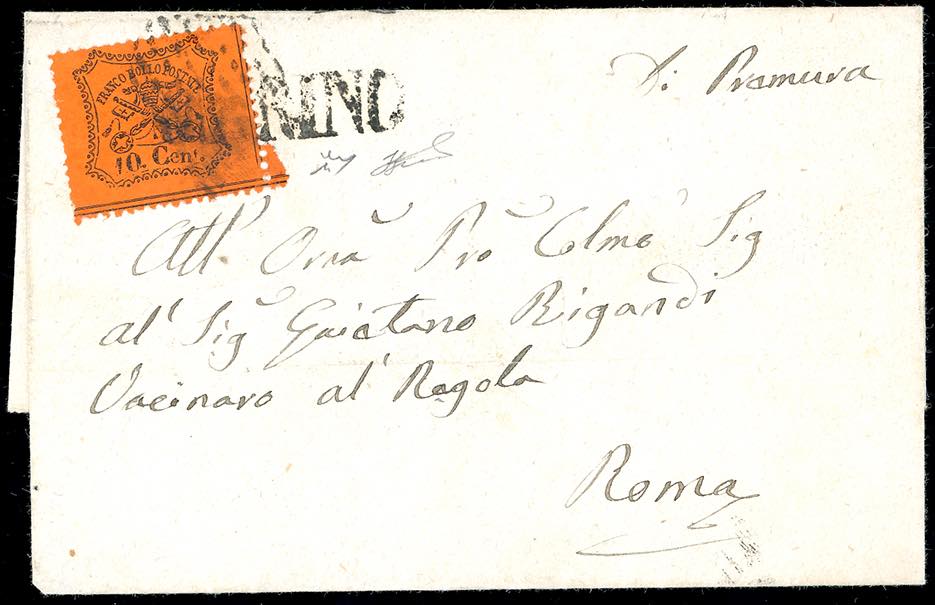 FRANCO BOLLO POSTALE
10. Cent.
RINO
Di Premura
All' Orna Pro Colmo Sig
al' Sig Gaietano Rigandi
Vacinaro al' Regola
Roma